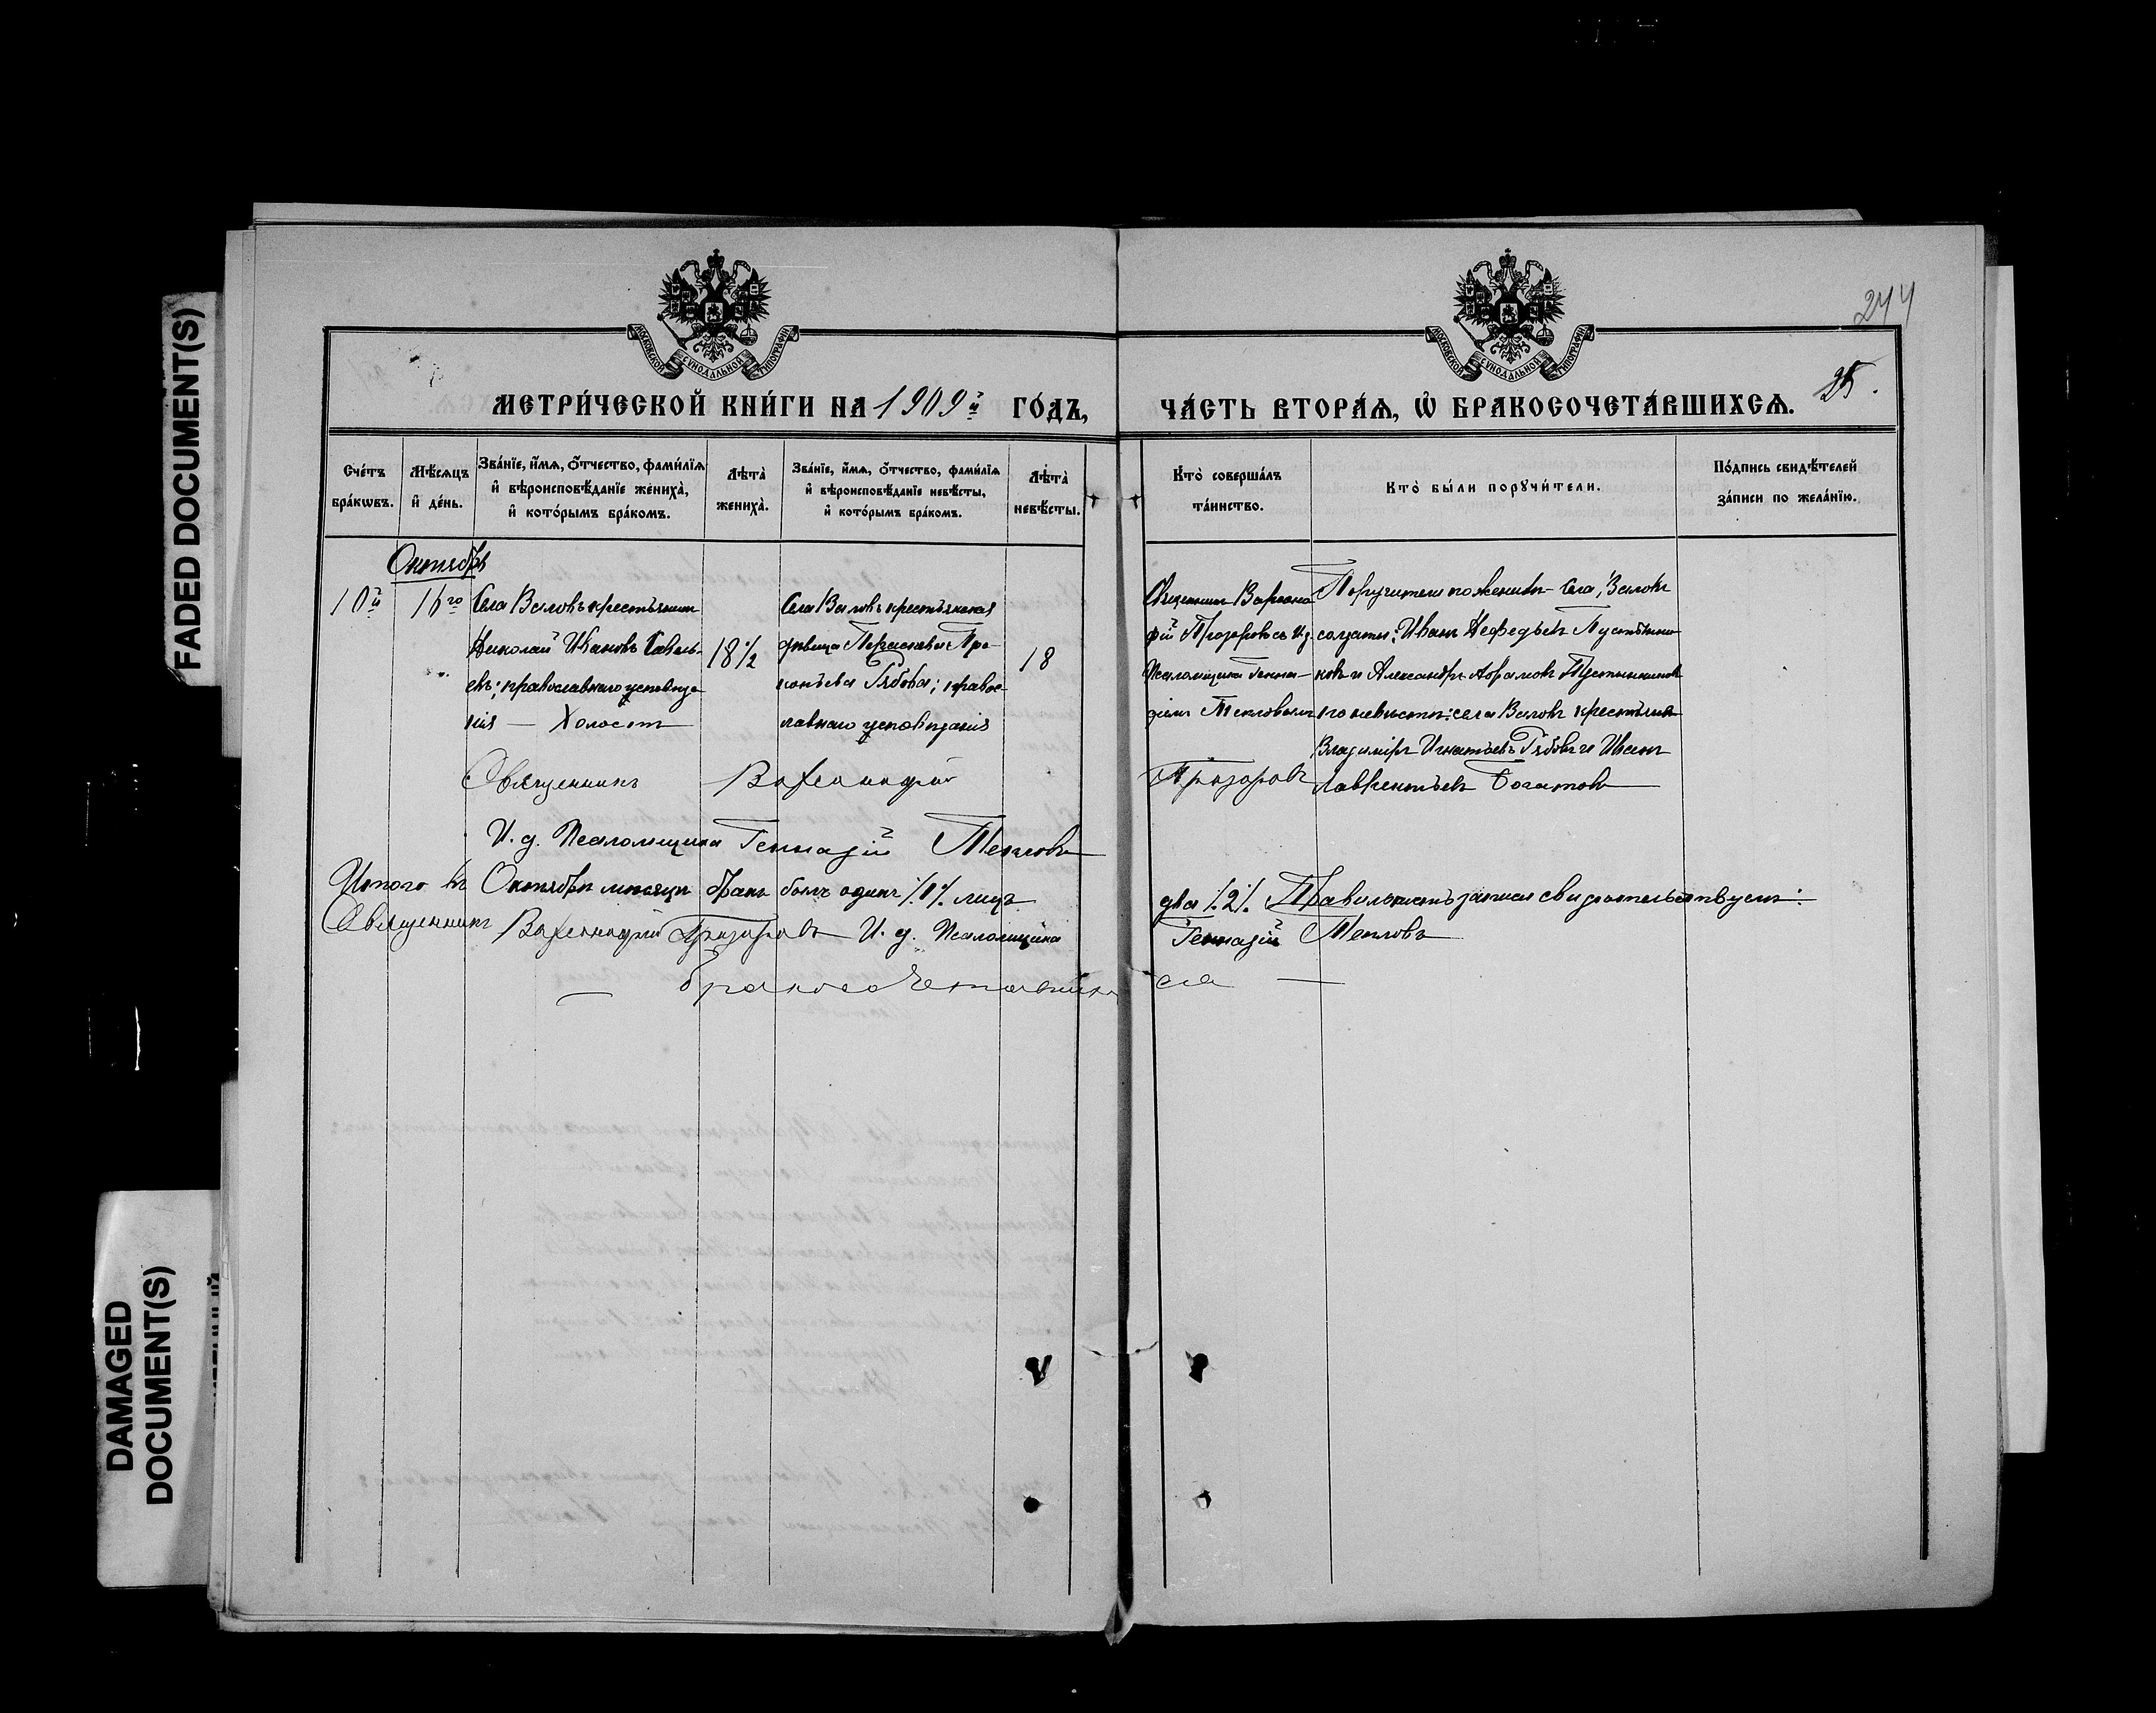 FADED DOCUMENT(S)
DAMAGED DOCUMENT(S)
244
МОСКОВСКОЙ СѴНОДАЛЬНОЙ ТИПОГРАФІИ
МОСКОВСКОЙ СѴНОДАЛЬНОЙ ТИПОГРАФІИ
МЕТРИ́ЧЕСКОЙ КНИ́ГИ НА 1909й ГО́ДЪ,
ЧА́СТЬ ВТОРА́Ѧ, Ѡ БРАКОСОЧЕТА́ВШИХСѦ.
25.
Сче́тъ бра́кѡвъ.
Мѣ́сѧцъ и҆ де́нь.
Зва́нїе, и҆́мѧ, о҆́тчество, фами́лїѧ и҆ вѣроисповѣ́данїе жениха̀, и҆ кото́рымъ бра́комъ.
Лѣта̀ жениха̀.
Зва́нїе, и҆́мѧ, о҆́тчество, фами́лїѧ и҆ вѣроисповѣ́данїе невѣ́сты, и҆ кото́рымъ бра́комъ.
Лѣта̀ невѣ́сты.
Кто̀ соверша́лъ та́инство.
Кто̀ бы́ли порꙋчи́тели.
По́дпись свидѣ́телей за́писи по жела́нїю.
Октябрь
10й
16го
Села Валовъ крестьянинъ
Николай Ивановъ Савель-
евъ; православнаго исповѣда
нія — Холостъ
18½
Села Валовъ крестьянская
дѣвица Параскева Про-
копьева Рябова; правос-
лавнаго исповѣданія
18
Священникъ Варсоно
фій Прозоровъ съ И.д.
Псаломщика Генна-
діемъ Тепловымъ
Поручители по женихѣ – села Валовъ
солдаты: Иванъ Нефедьевъ Пустынни
ковъ и Александръ Абрамовъ Пустынниковъ
по невѣстѣ: села Валовъ крестьяне
Владиміръ Игнатьевъ Рябовъ и Иванъ
Лаврентьевъ Богатовъ
Священникъ Прозоровъ
И. д. Псаломщика Геннадій Тепловъ
Итого въ Октябрѣ мѣсяцѣ бракъ былъ одинъ /.1/. лицъ два /.2/. Правильность записи свидѣтельствуемъ:
Священникъ Прозоровъ И. д. Псаломщика Геннадій Тепловъ